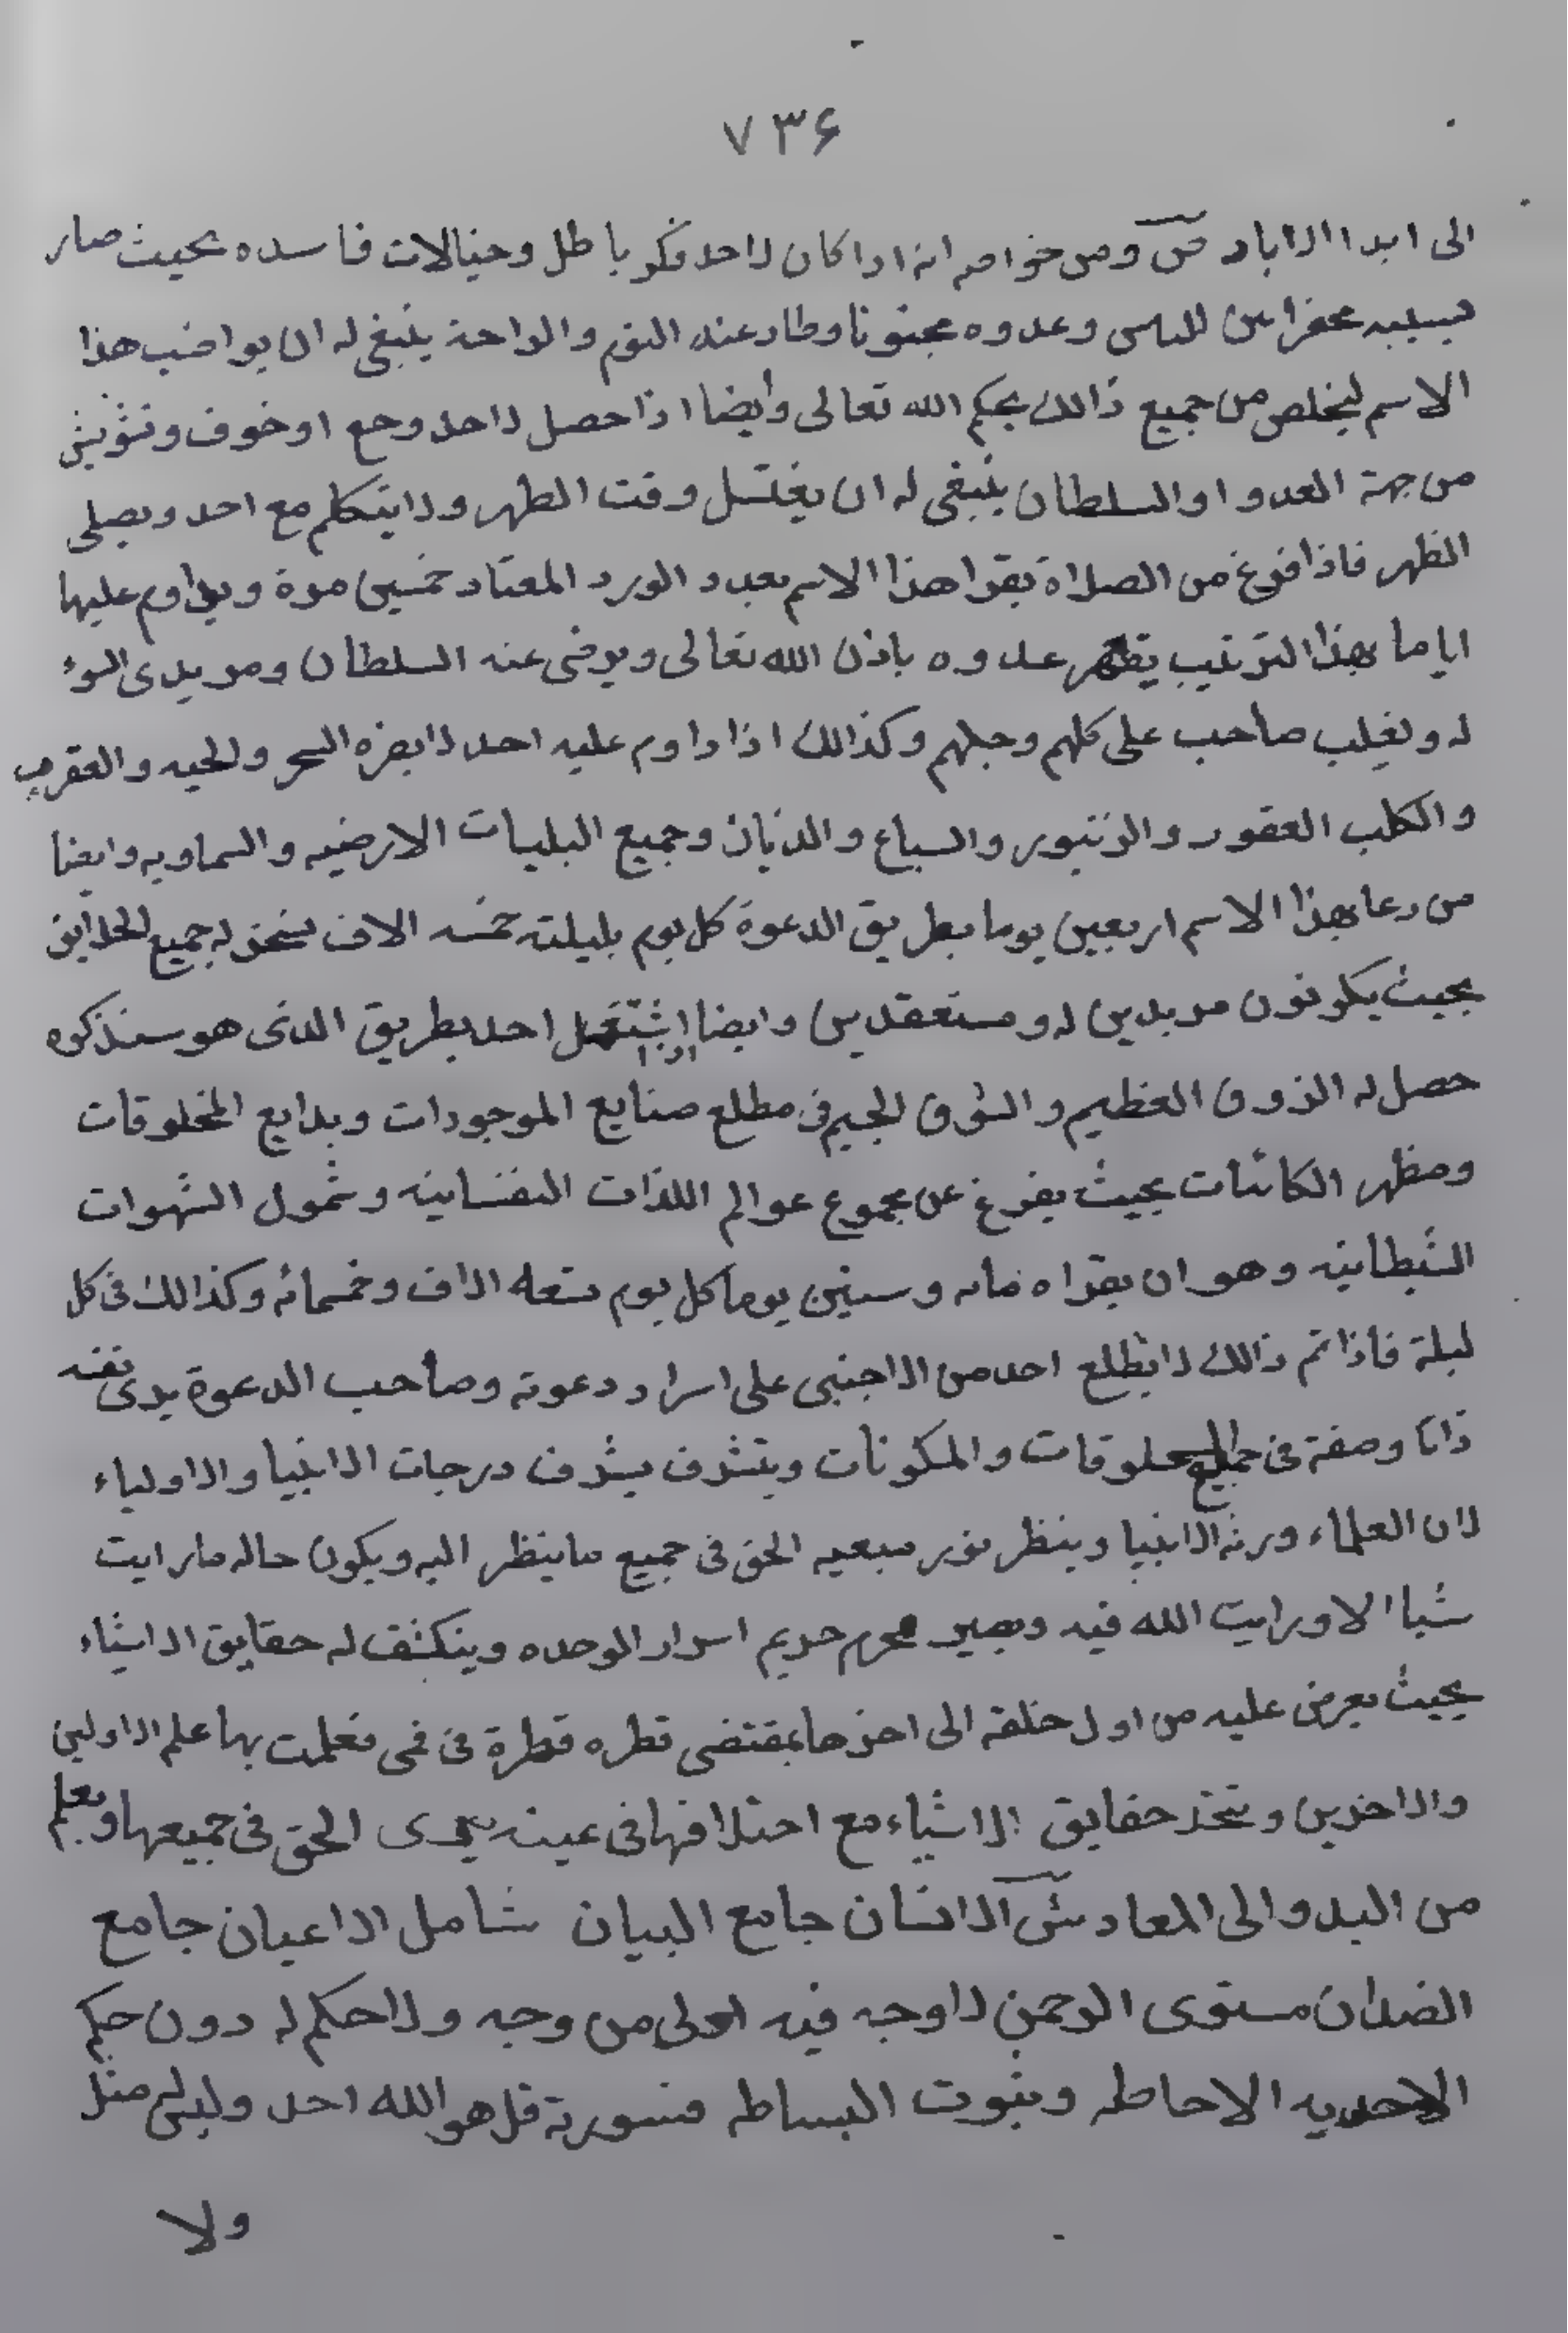 ٧٣۶
الى ابد الاباد ص ومن خواصه انه اذا كان لاحد فكر باطل وخيالات فاسده بحيث صار
بسببه بين الناس وعدوه مجنونا وطار عنه النوم والراحة ينبغي له ان يواضب هذا
الاسم ليخلص من جميع ذالك بحكم الله تعالى وأيضا اذا حصل لاحد وجع او خوف وتشويش
من جهة العدو او السلطان ينبغي له ان يغتسل وقت الظهر ولا يتكلم مع احد ويصلي
الظهر فاذا فرغ من الصلاة يقرا هذا الاسم بعدد الورد المعتاد خمسين مرة ويداوم عليها
اياما بهذا الترتيب يقهر عدوه باذن الله تعالى ويرضى عنه السلطان ومريدى السوء
له ويغلب صاحب على كلهم وجلهم وكذالك اذا داوم عليه احد لا يضره السحر والحيه والعقرب
والكلب العقور والزنبور والسباع والذبان وجميع البليات الارضيه والسماويه وايضا
من دعا بهذا الاسم اربعين يوما بطريق الدعوة كل يوم بليلته خمسه الاف يسخر له جميع الخلايق
بحيث يكونون مريدين له ومستعقدين وايضا اذا اشتغل احد بطريق الذى هو سنذكره
حصل له الذوق العظيم والشوق الجسيم فى مطلع صنايع الموجودات وبدايع المخلوقات
ومظهر الكائنات بحيث يفرغ عن مجموع عوالم اللذات النفسانيه وشمول الشهوات
الشيطانيه وهو ان يقراه مائه وستين يوما كل يوم تسعه الاف وخمسمائه وكذالك فى كل
ليلة فاذا تم ذالك لا يطلع احد من الاجنبى على اسرار دعوته وصاحب الدعوة يرى نفسه
ذاتا وصفة فى جميع المخلوقات والمكونات ويتشرف بشرف درجات الانبيا والاولياء
لان العلماء ورثة الانبيا وينظر بنور الحق فى جميع ما ينظر اليه ويكون حاله ما رايت
شيا الا ورايت الله فيه ويصير محرم حريم اسرار الوحده وينكشف له حقايق الاشياء
بحيث يعرض عليه من اول خلقه الى اخرها بمقتضى قطره قطرة فى فمى فعلمت بها علم الاولين
والاخرين ويتخذ حقايق الاشياء مع اختلافها فى عينه يرى الحق فى جميعها ويعلم
من البدو الى المعاد ش الانسان جامع البيان شامل الاعيان جامع
الضدان مستوى الرحمن لا وجه فيه اولى من وجه ولا حكم له دون حكم
الاحديه الاحاطه وثبوت البساطه فسورة قل هو الله احد وليس مثل
ولا